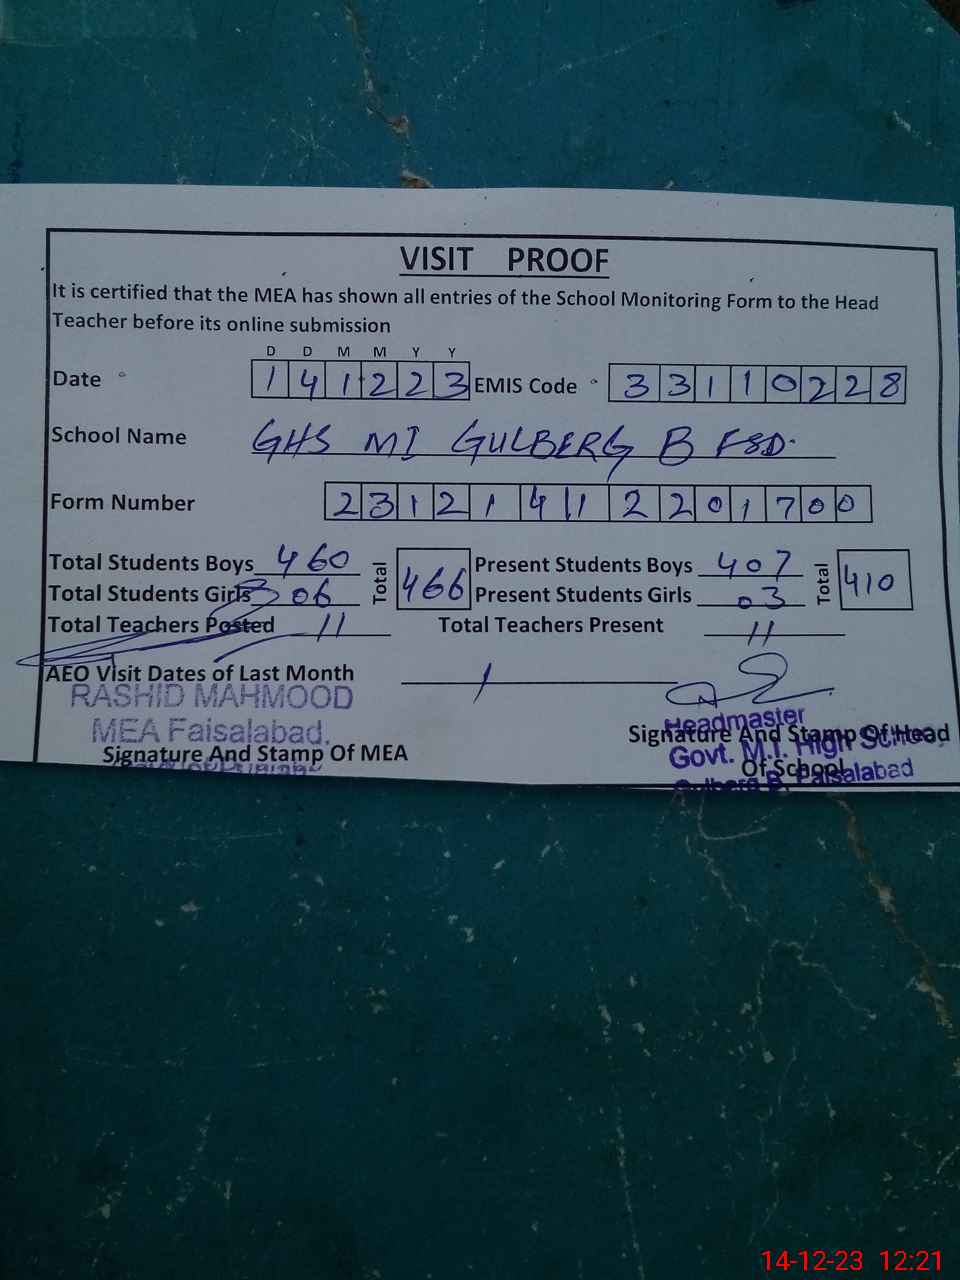 VISIT PROOF
It is certified that the MEA has shown all entries of the School Monitoring Form to the Head
Teacher before its online submission
D D M M Y Y
Date 1 4 1 2 2 3 EMIS Code 3 3 1 1 0 2 2 8
School Name GHS MI GULBERG B FSD.
Form Number 2 3 1 2 1 4 1 1 2 2 0 1 7 0 0
Total Students Boys 460 Total 466 Present Students Boys 407 Total 410
Total Students Girls 06 Present Students Girls 03
Total Teachers Posted 11 Total Teachers Present 11
AEO Visit Dates of Last Month /
RASHID MAHMOOD
MEA Faisalabad.
Signature And Stamp Of MEA
Headmaster
Signature And Stamp Of Head
Govt. M.I. High School
Of School
Gulberg B, Faisalabad
14-12-23 12:21